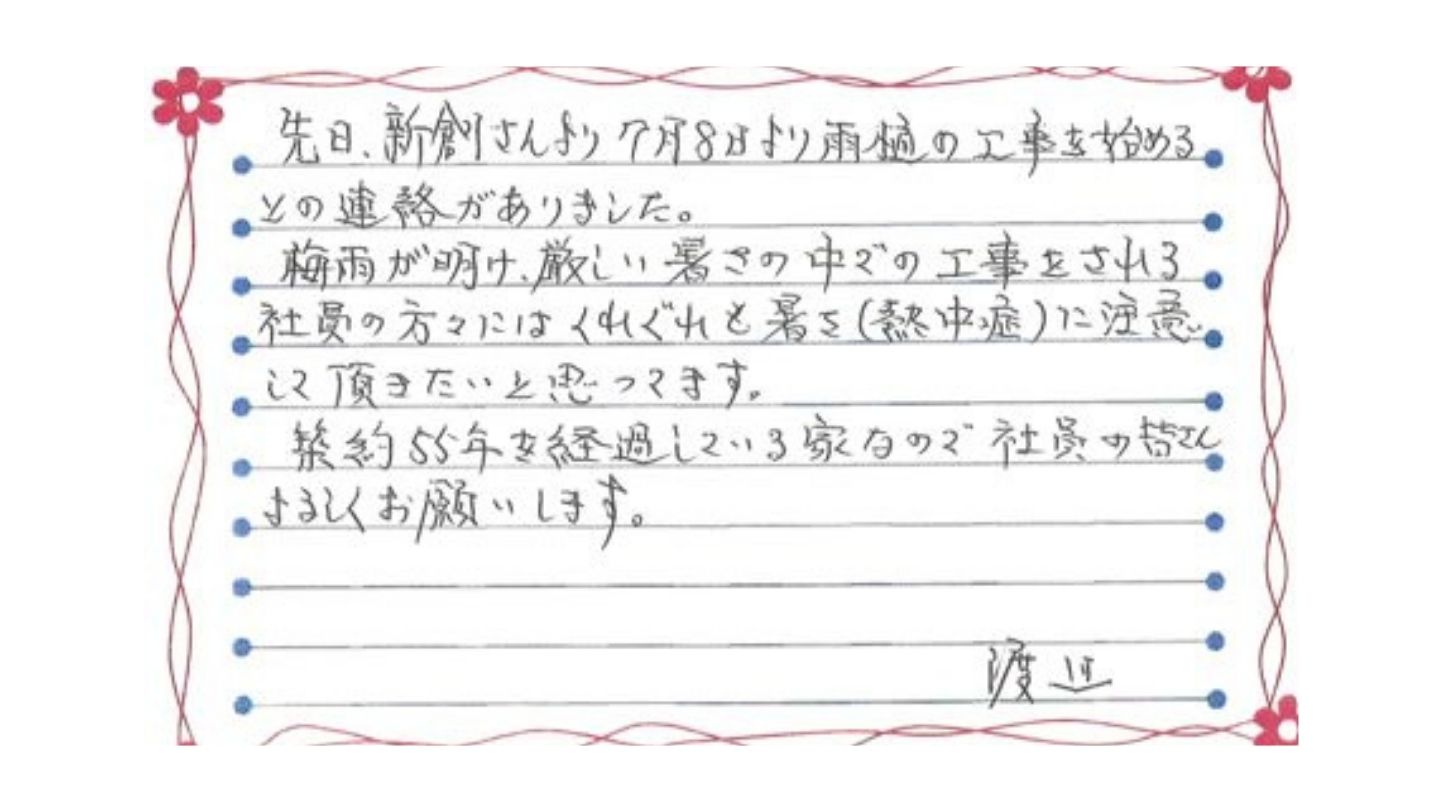 先日、新創さんより7月8日より雨樋の工事を始める
との連絡がありました。
梅雨が明け、厳しい暑さの中での工事をされる
社員の方々にはくれぐれも暑さ(熱中症)に注意
して頂きたいと思ってます。
築約55年を経過している家なので社員の皆さん
よろしくお願いします。
渡辺